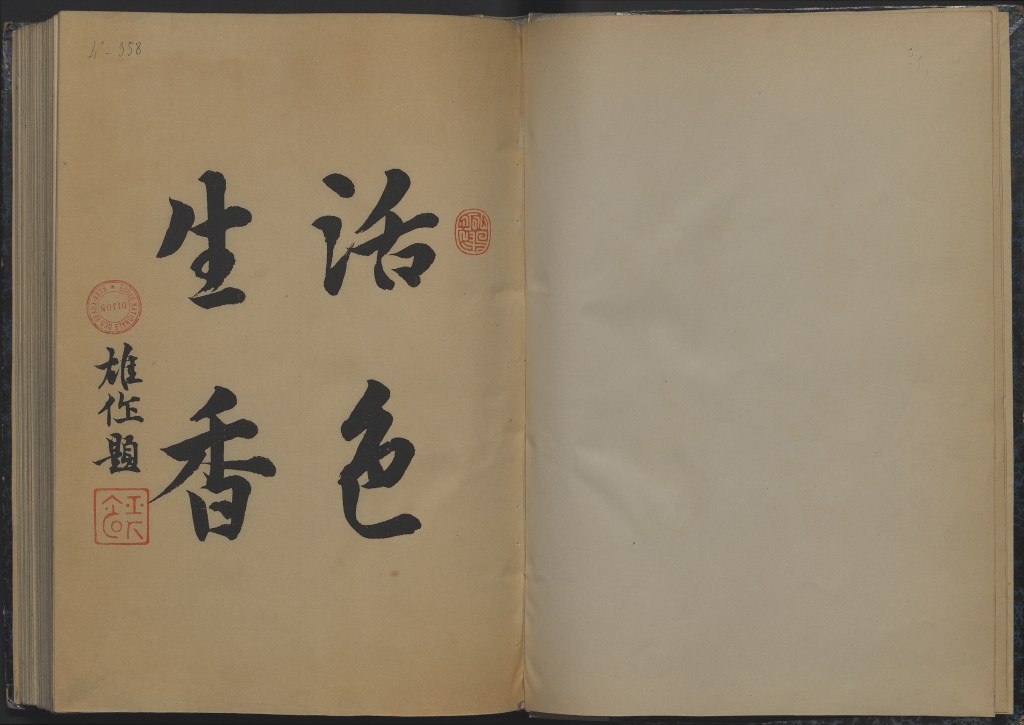 活色
生香
雄作題
N°- 358